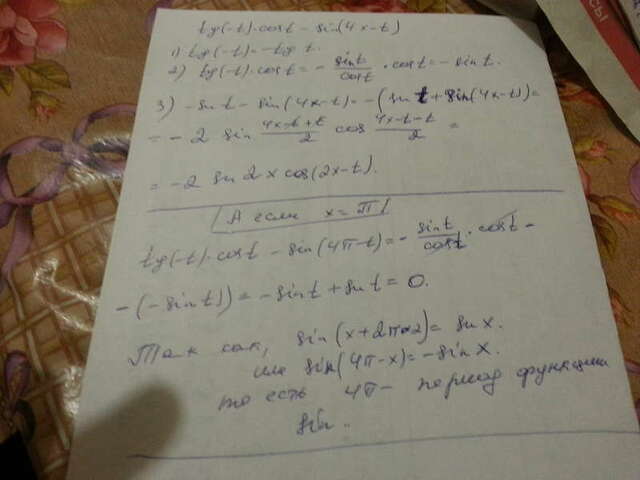 tg(-t)·cost - sin(4x-t)
1) tg(-t) = -tg t.
2) tg(-t)·cost = - sint/cost · cost = - sin t.
3) - sin t - sin(4x-t) = -(sin t + sin(4x-t)) =
= - 2 sin (4x-t+t)/2 cos (4x-t-t)/2 =
= -2 sin 2x cos(2x-t).
А если x = π!
tg(-t)·cost - sin(4π-t) = - sint/cost · cost -
- (-sin t) = -sin t + sin t = 0.
Так как, sin(x+2π·2) = sin x.
или sin(4π-x) = -sin x.
то есть 4π - период функции
sin..